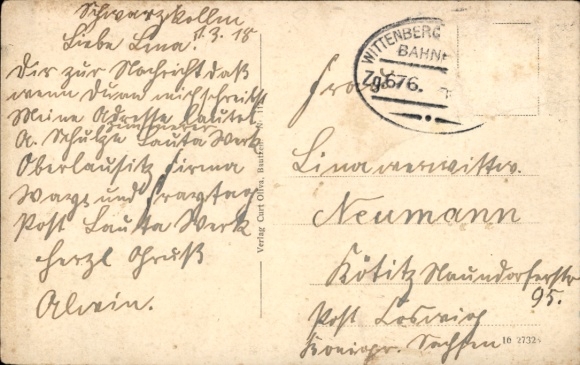 Schwarzkollm
Liebe Lina! 11.3.18
Dir zur Nachricht daß
wenn Du an mich schreibst
Meine Adresse lautet
A. Schulze Zimmerer Lauta Werk
Oberlausitz Firma
Ways und Freytag
Post Lauta Werk
herzl Gruß
Alwin.
Verlag Curt Oliva, Bautzen
WITTENBERG
BAHN
Zg.676.
Frau
Lina verwittw.
Neumann
Kötitz Naundorferstr
95.
Post Coswig
Königr. Sachsen
16 2732